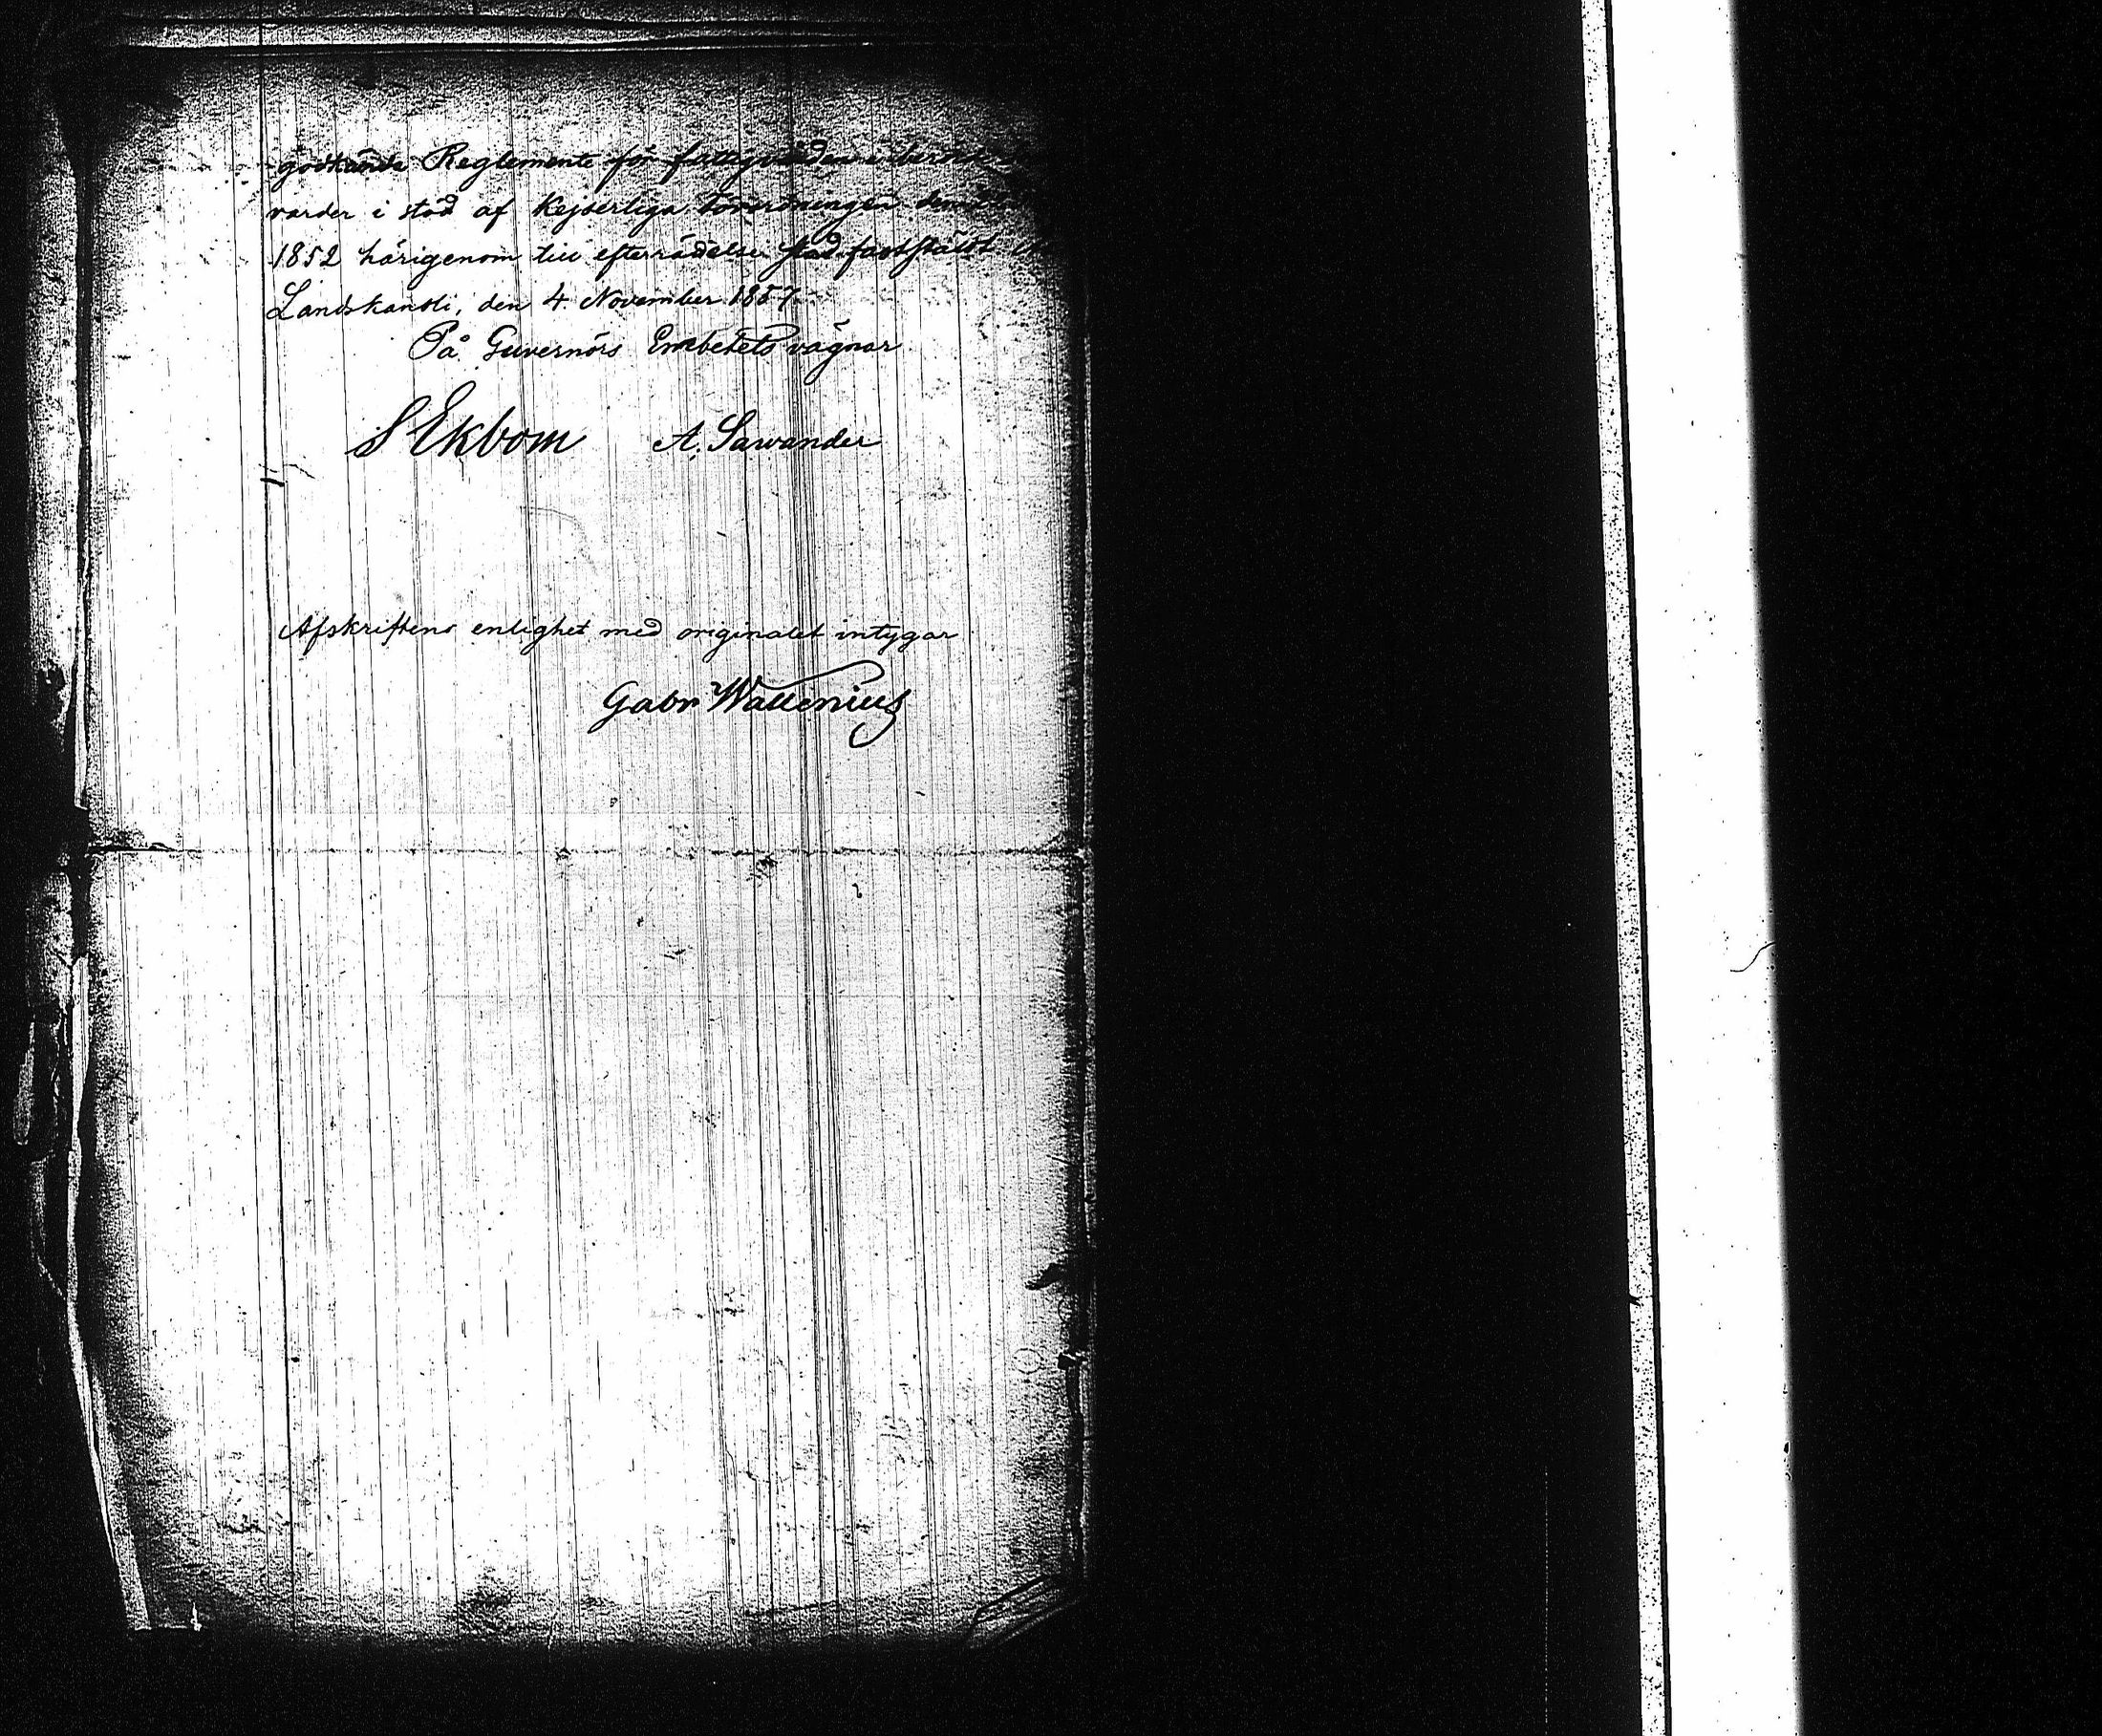 godkände Reglemente för fattigvården i berörde
varder i stöd af Kejserliga Förordningen
1852 härigenom till efterrädelse stadfäststäldt
Landskansli, den 4 November 1857.
På Guvernörs Embetets vägnar
S Ekbom A. Sawander
Afskriftens enlighet med originalet intygar
Gabr Wallenius